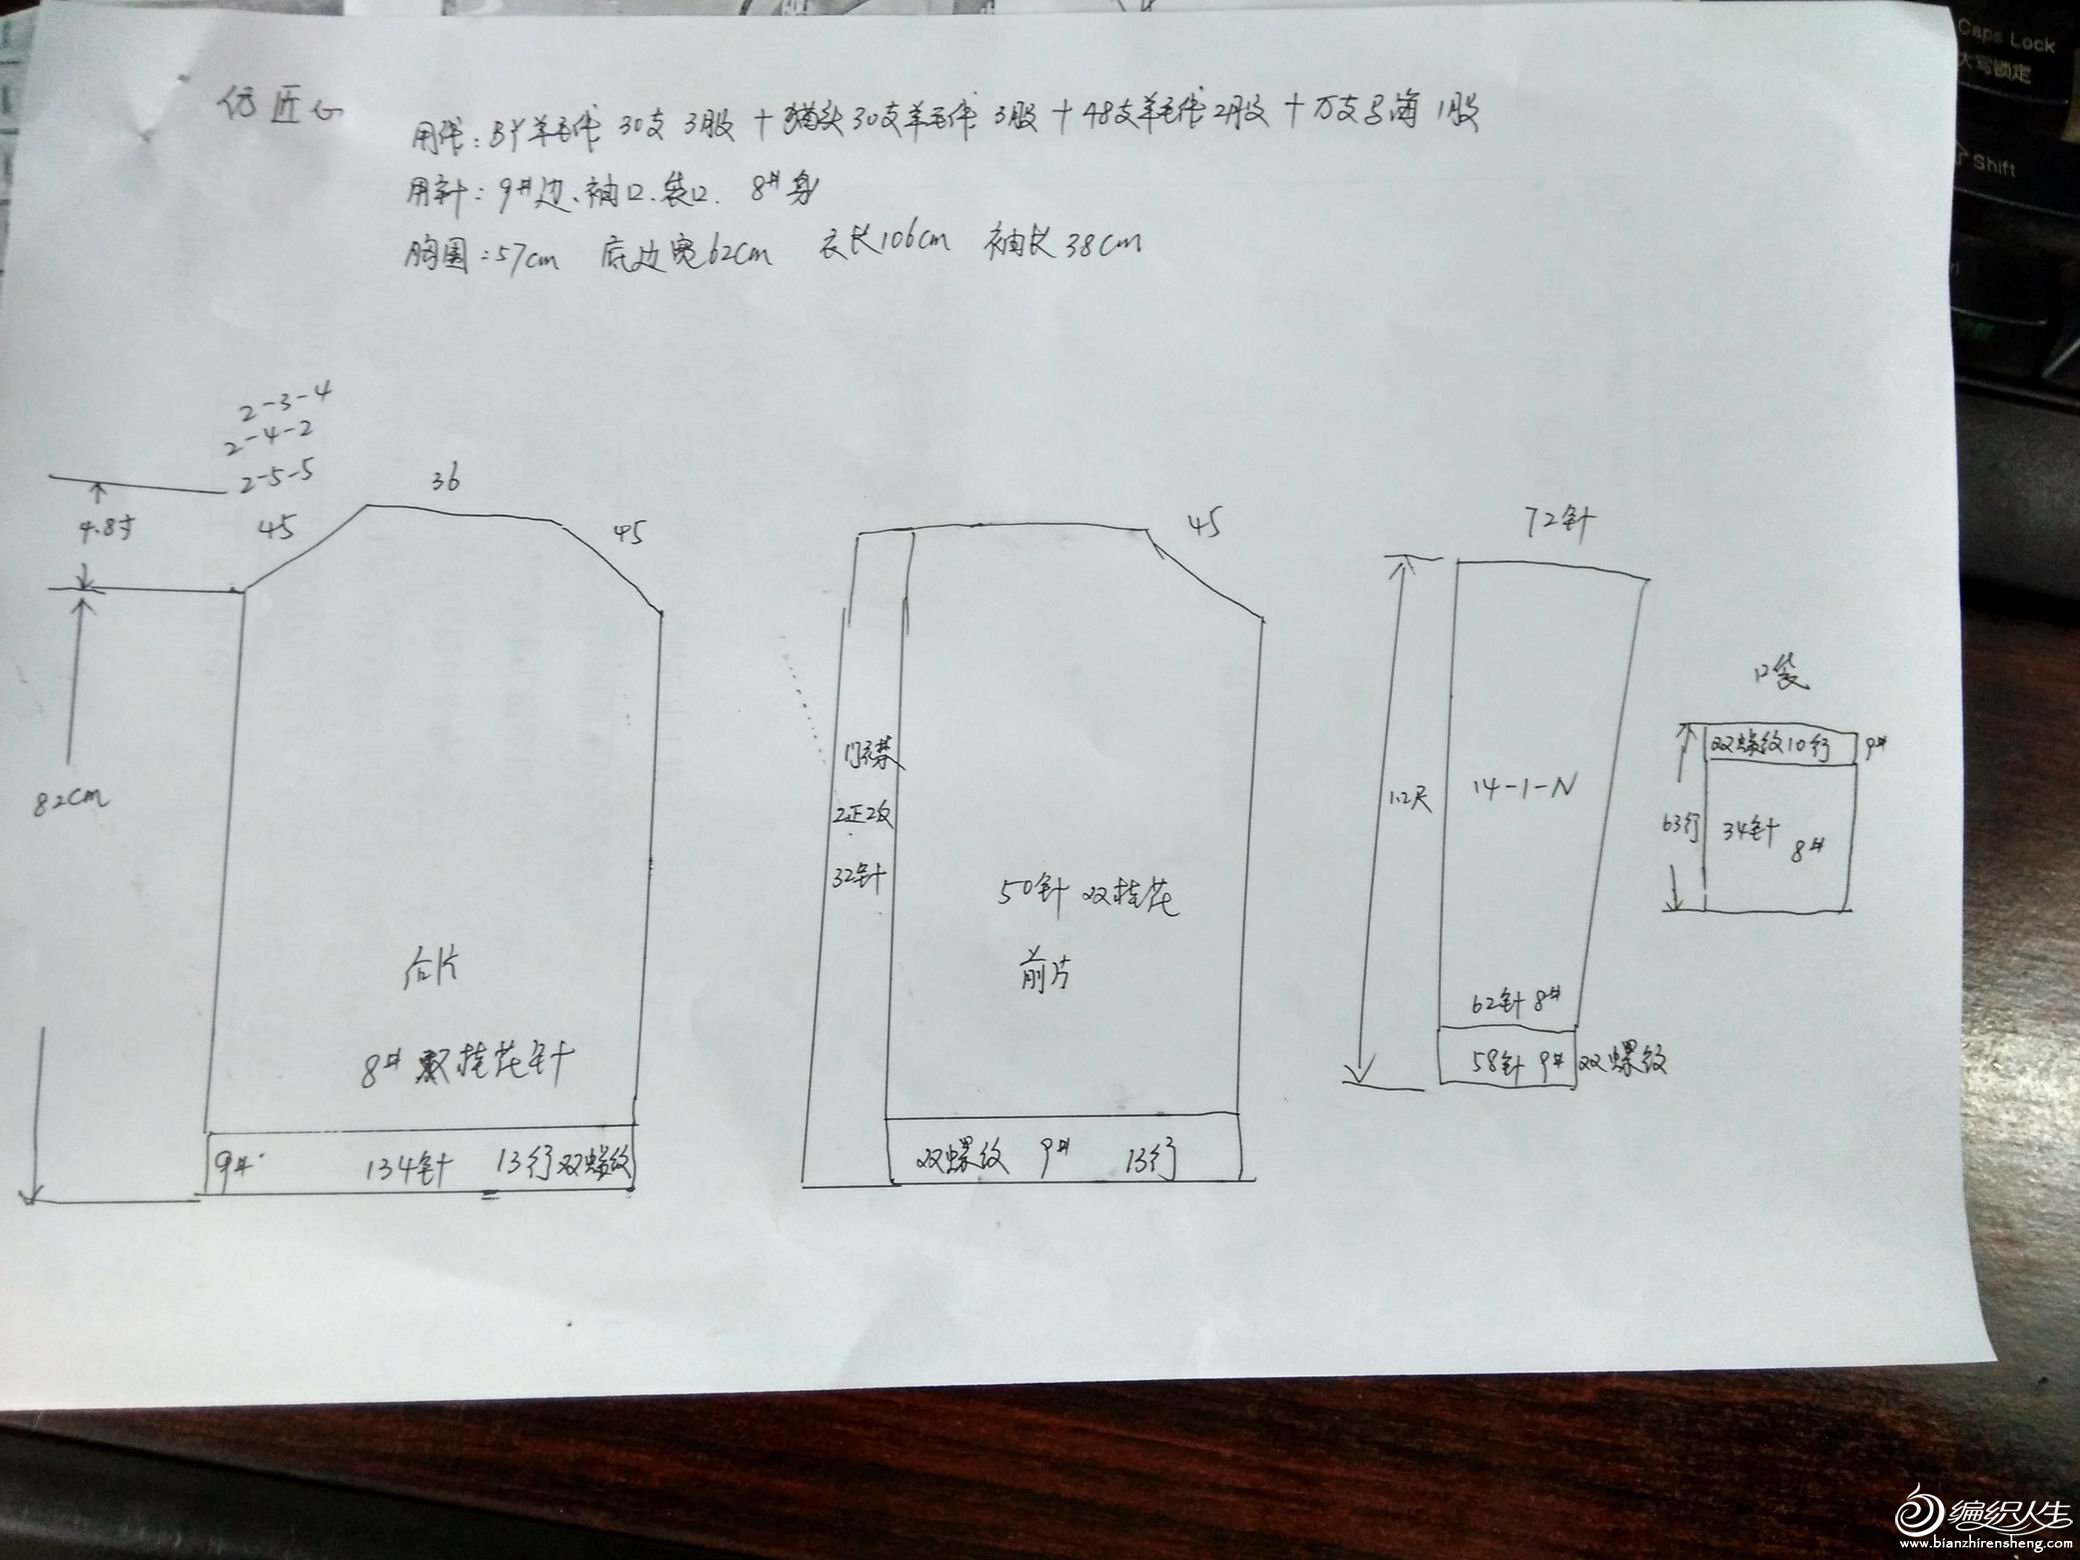 仿匠心
用线:BY羊毛线 30支 3股 + 猫头30支羊毛线 3股 + 48支羊毛线2股 + 万支马海 1股
用针:9#边、袖口、袋口. 8#身
胸围:57cm 底边宽62cm 衣长106cm 袖长38cm
2-3-4
2-4-2
2-5-5
4.8寸
45
36
45
82cm
后片
8# 双桂花针
9# 134针 13行双螺纹
45
门襟
2正2反
32针
50针 双桂花
前片
双螺纹 9# 13行
72针
1.2尺
14-1-N
62针 8#
58针 9# 双螺纹
口袋
双螺纹10行 9#
63行
34针
8#
Caps Lock
大写锁定
Shift
编织人生
www.bianzhirensheng.com